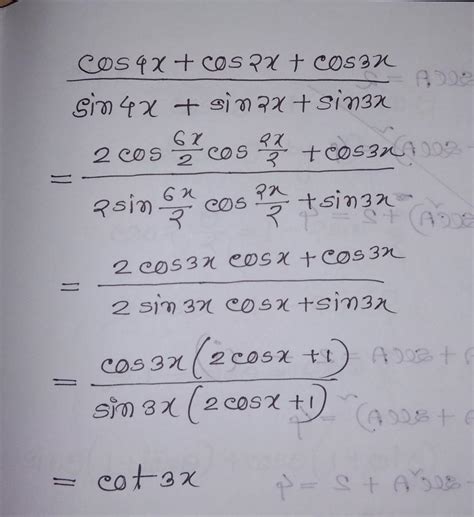 cos4x + cos2x + cos3x
sin4x + sin2x + sin3x
= 2 cos 6x/2 cos 2x/2 + cos3x
2 sin 6x/2 cos 2x/2 + sin3x
= 2 cos3x cosx + cos3x
2 sin 3x cosx + sin3x
= cos3x (2cosx + 1)
sin 3x (2cosx + 1)
= cot 3x